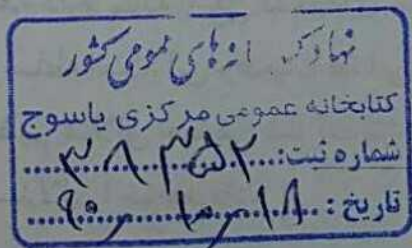 نهاد کـ انه های عمومی کشور
کتابخانه عمومی مرکزی یاسوج
شماره ثبت: ۳۸۳۵۲
تاریخ: ۹۰-۱۰-۱۸